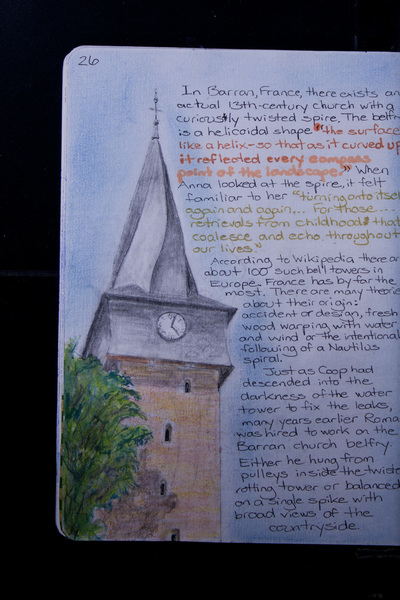 26
In Barran, France, there exists an
actual 13th-century church with a
curiously twisted spire. The belfry
is a helicoidal shape "the surface
like a helix-so that as it curved up
it reflected every compass
point of the landscape." When
Anna looked at the spire, it felt
familiar to her "turning onto itself
again and again... For those....
retrievals from childhood that
coalesce and echo throughout
our lives."
According to Wikipedia there are
about 100 such bell towers in
Europe. France has by far the
most. There are many theories
about their origin:
accident or design, fresh
wood warping with water
and wind or the intentional
following of a Nautilus
spiral.
Just as Coop had
descended into the
darkness of the water
tower to fix the leaks,
many years earlier Roma
was hired to work on the
Barran church belfry
Either he hung from
pulleys inside the twiste
rotting tower or balanced
on a single spike with
broad views of the
countryside